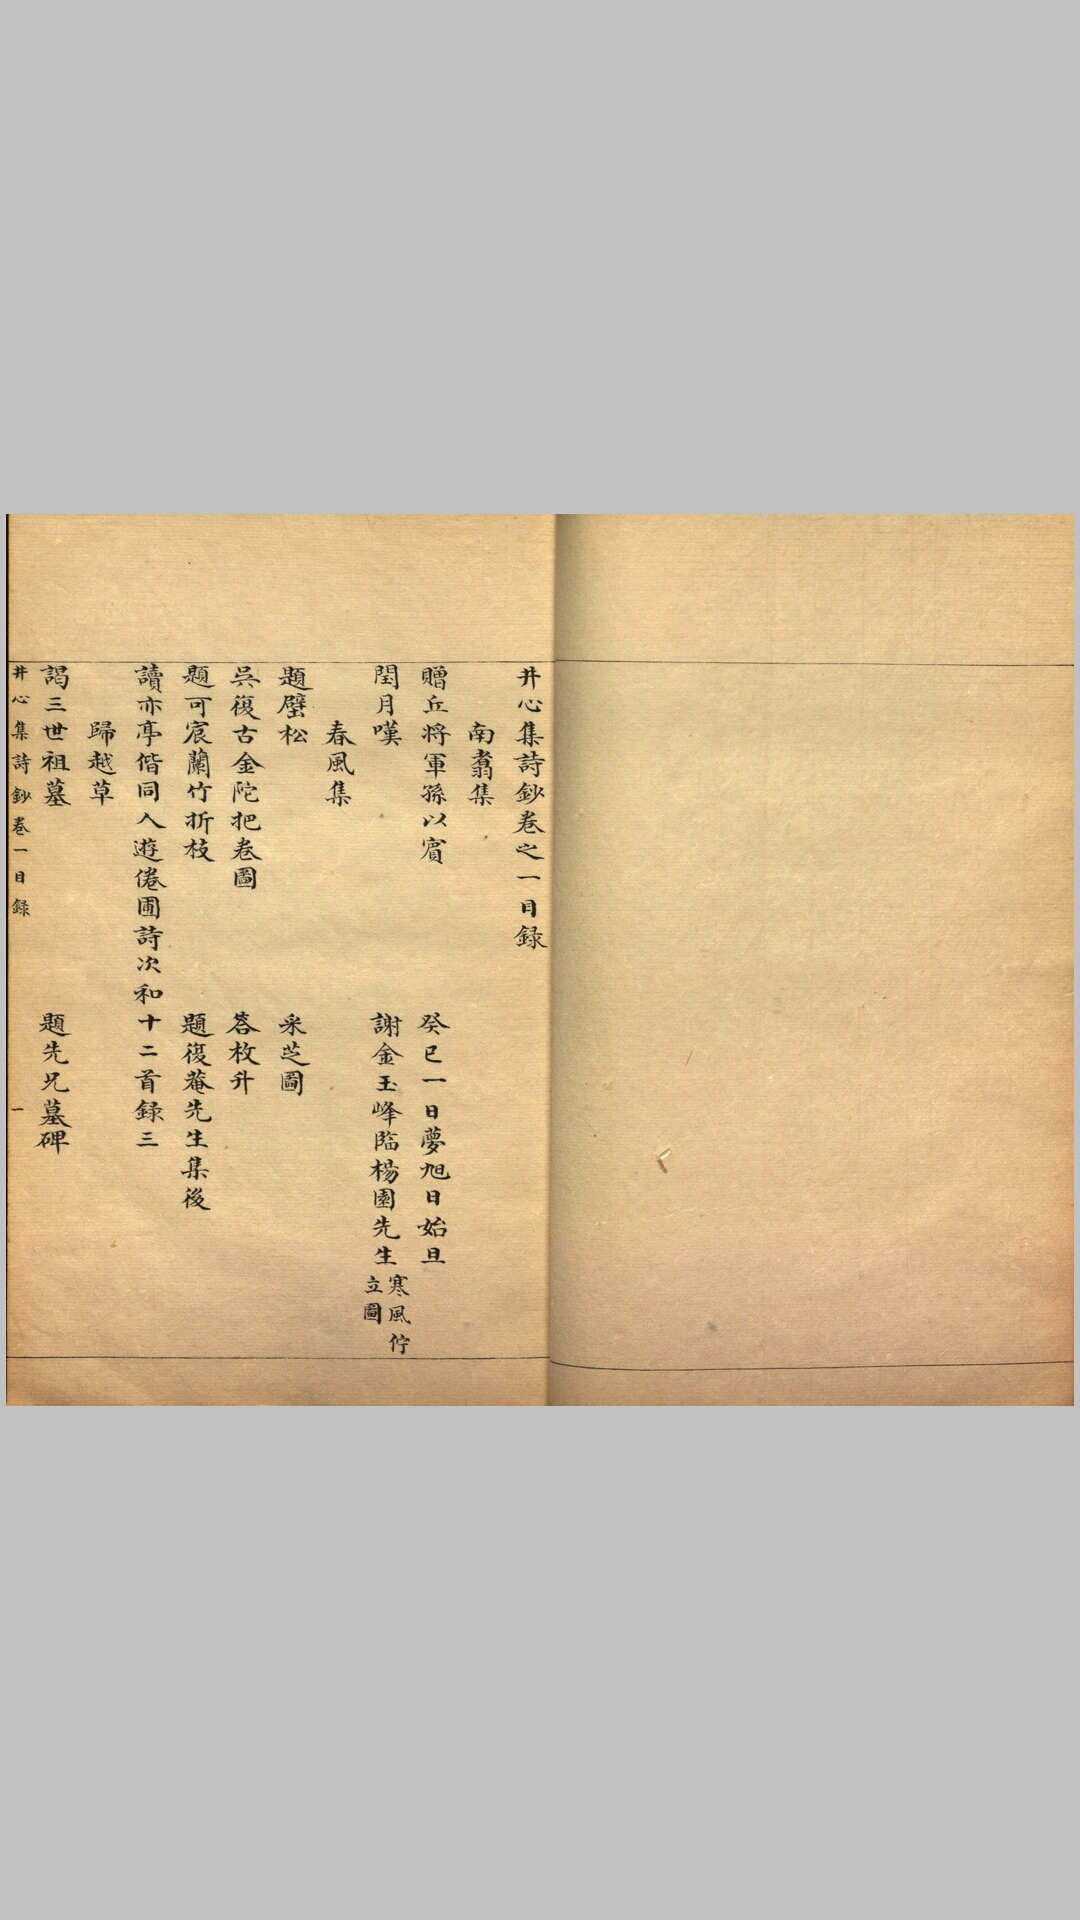 井心集詩鈔卷之一目録
南翥集
贈丘将軍孫以賓　癸巳一日夢旭日始旦
閏月嘆　謝金玉峰臨楊園先生寒風佇立圖
春風集
題壁松　采芝圖
吳復古金陀把卷圖　答枚升
題可宸蘭竹折枝　題復菴先生集後
讀亦亭偕同人遊倦圃詩次和十二首録三
歸越草
謁三世祖墓　題先兄墓碑
井心集詩鈔卷一目録　一